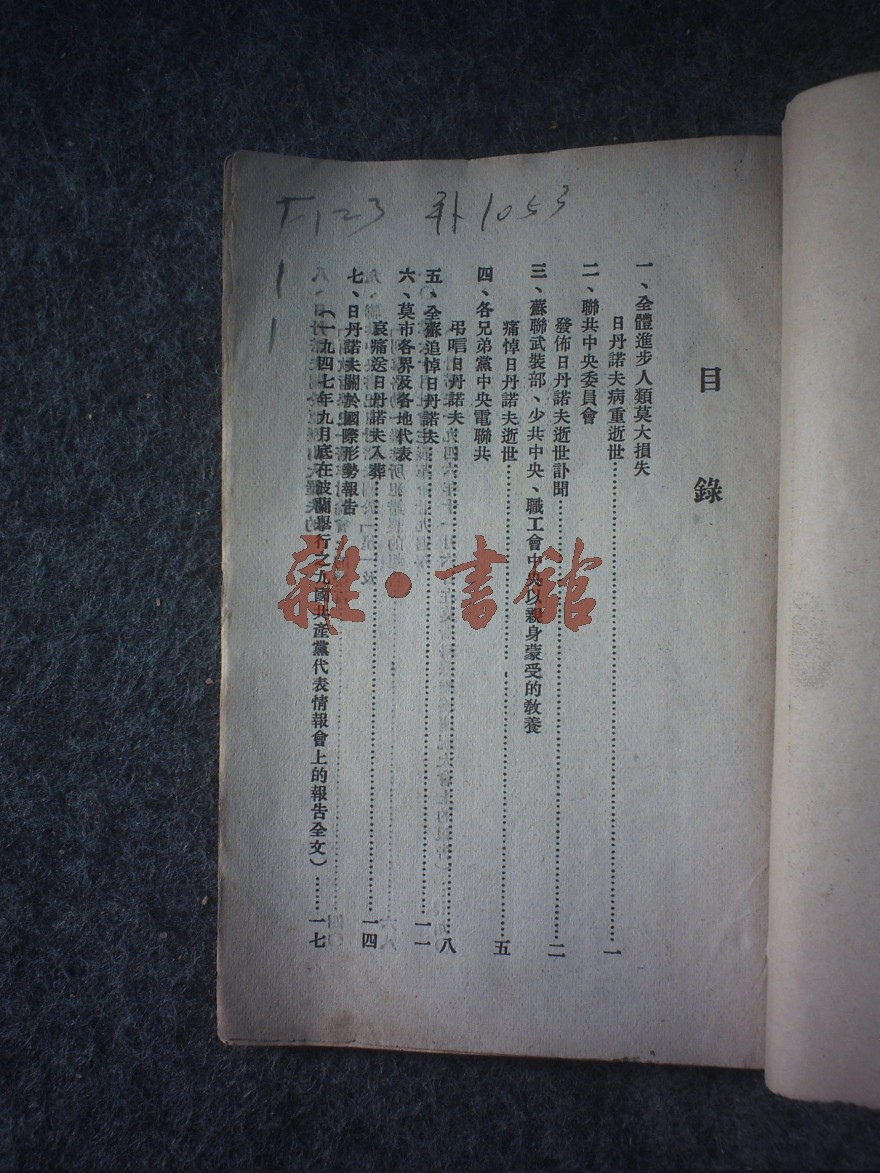 T123 补1053
目錄
一、全體進步人類莫大損失
日丹諾夫病重逝世……一
二、聯共中央委員會
發佈日丹諾夫逝世訃聞……二
三、蘇聯武裝部、少共中央、職工會中央以親身蒙受的敎養
痛悼日丹諾夫逝世……五
四、各兄弟黨中央電聯共
弔唁日丹諾夫……八
五、全蘇追悼日丹諾夫……一一
六、莫市各界及各地代表
哀痛送日丹諾夫入葬……一四
七、日丹諾夫關於國際形勢報告
（一九四七年九月底在波蘭舉行之九國共產黨代表情報會上的報告全文）……一七
雜·書館